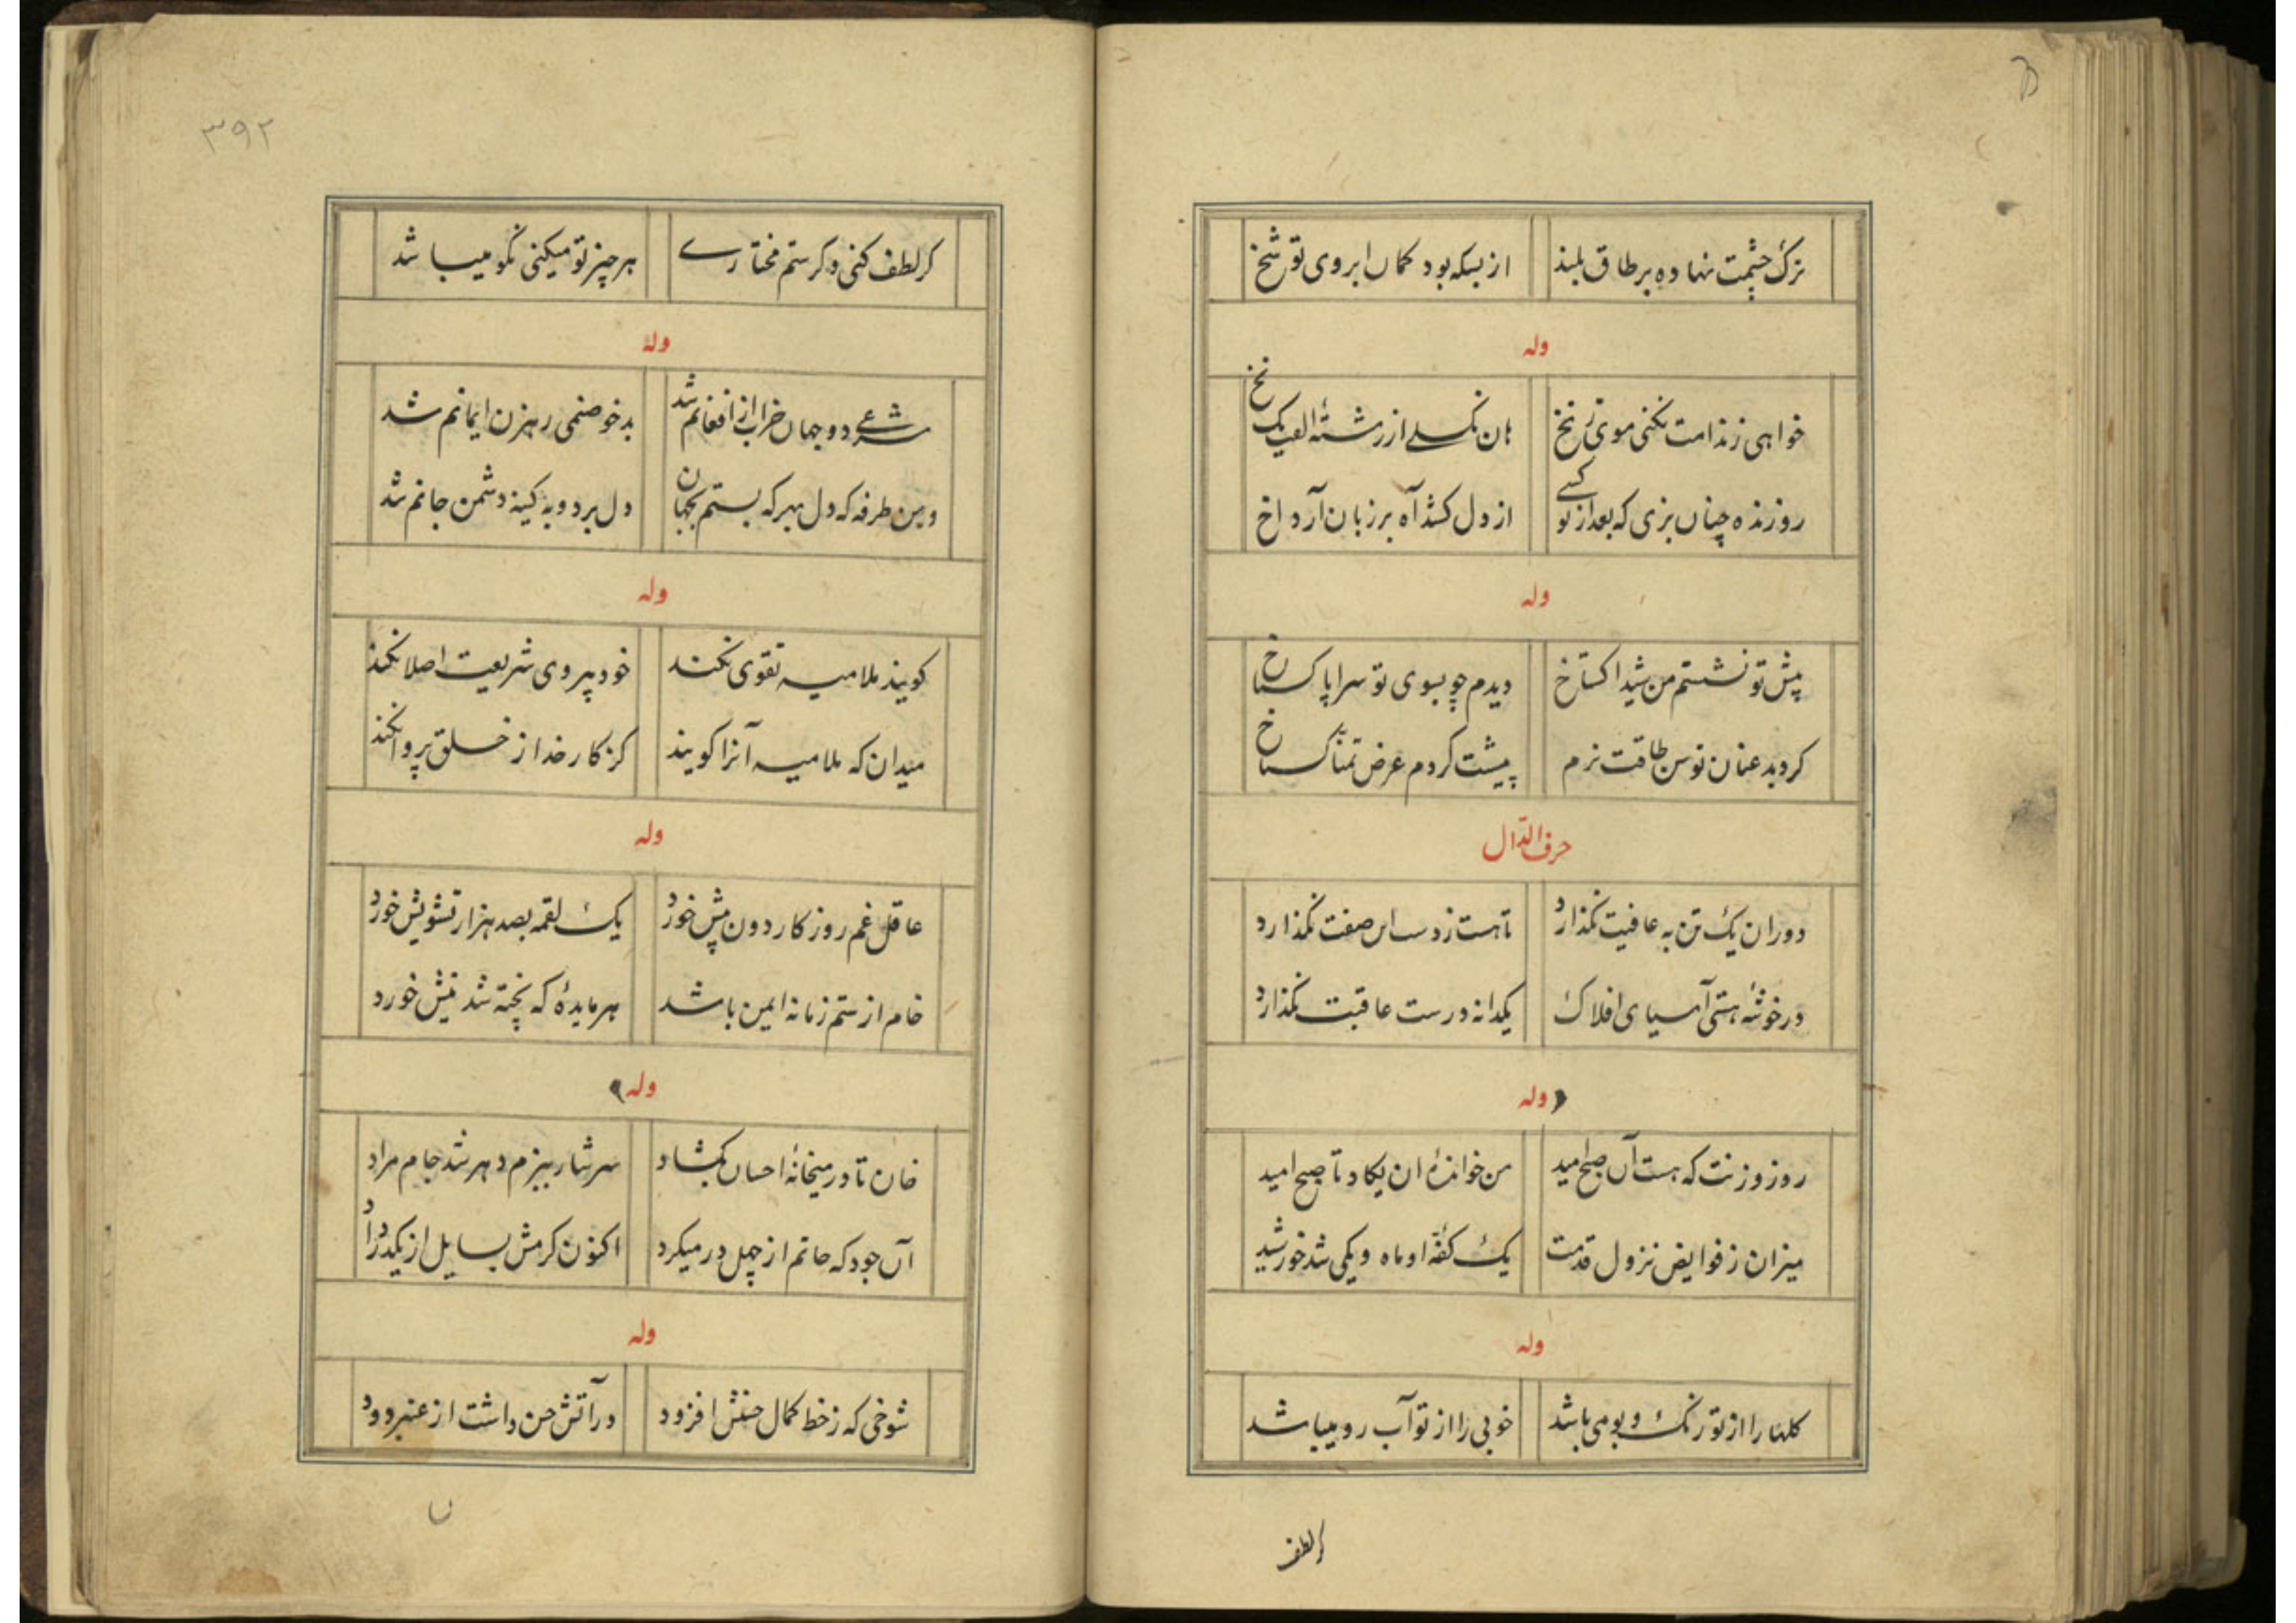 ترک چشمت نهاده بر طاق بلند از بسکه بود کمان ابروی تو شخ
وله
خواهی ز ندامت نکنی موی زنخ هان نگسلی از رشتهٔ الفت یک نخ
رو زنده چنان بزی که بعد از تو کسی از دل کشد آه بر زبان آرد اخ
وله
پیش تو نشستم من شیدا کستاخ دیدم چو بسوی تو سراپا کستاخ
کردید عنان توسن طاقت نرم پیشت کردم عرض تمنّا کستاخ
حرف الدّال
دوران یک تن به عافیت نکذارد تا هست ز دست این صفت نکذارد
در خوشهٔ هستی آسیای افلاک یکدانه درست عاقبت نکذارد
وله
روز وزنت که هست آن صبح امید من خواندهٔ ان یکاد تا صبح امید
میزان ز فوایض نزول قدمت یک کفّهٔ او ماه و یکی شد خورشید
وله
کلها را از تو رنک و بو می باشد خوبی را از تو آب رو میباشد
کر لطف
۳۹۲
کر لطف کنی و کر ستم مختاری هر چیز تو میکنی نکو میباشد
وله
دو جهان خراب از افغانم شد بدخو صنمی رهزن ایمانم شد
وین طرفه که دل بهر که بستم بجهان دل برد و به کینه دشمن جانم شد
وله
کویند ملامیه تقوی نکنند خود پیروی شریعت اصلا نکنند
میدان که ملامیه آنرا کویند کز کار خدا ز خلق پروا نکند
وله
عاقل غم روزکار دون پیش خورد یک لقمه بصد هزار تشویش خورد
خام از ستم زمانه ایمن باشد هر مایدهٔ که پخته شد نیش خورد
وله
خان تا در میخانهٔ احسان بکشاد سرشار ببزم دهر شد جام مراد
آن جود که حاتم از چهل در میکرد اکنون کرمش بسایل از یکدر داد
وله
شوخی که ز خط کمال حسنش افزود در آتش حسن داشت از عنبر دود